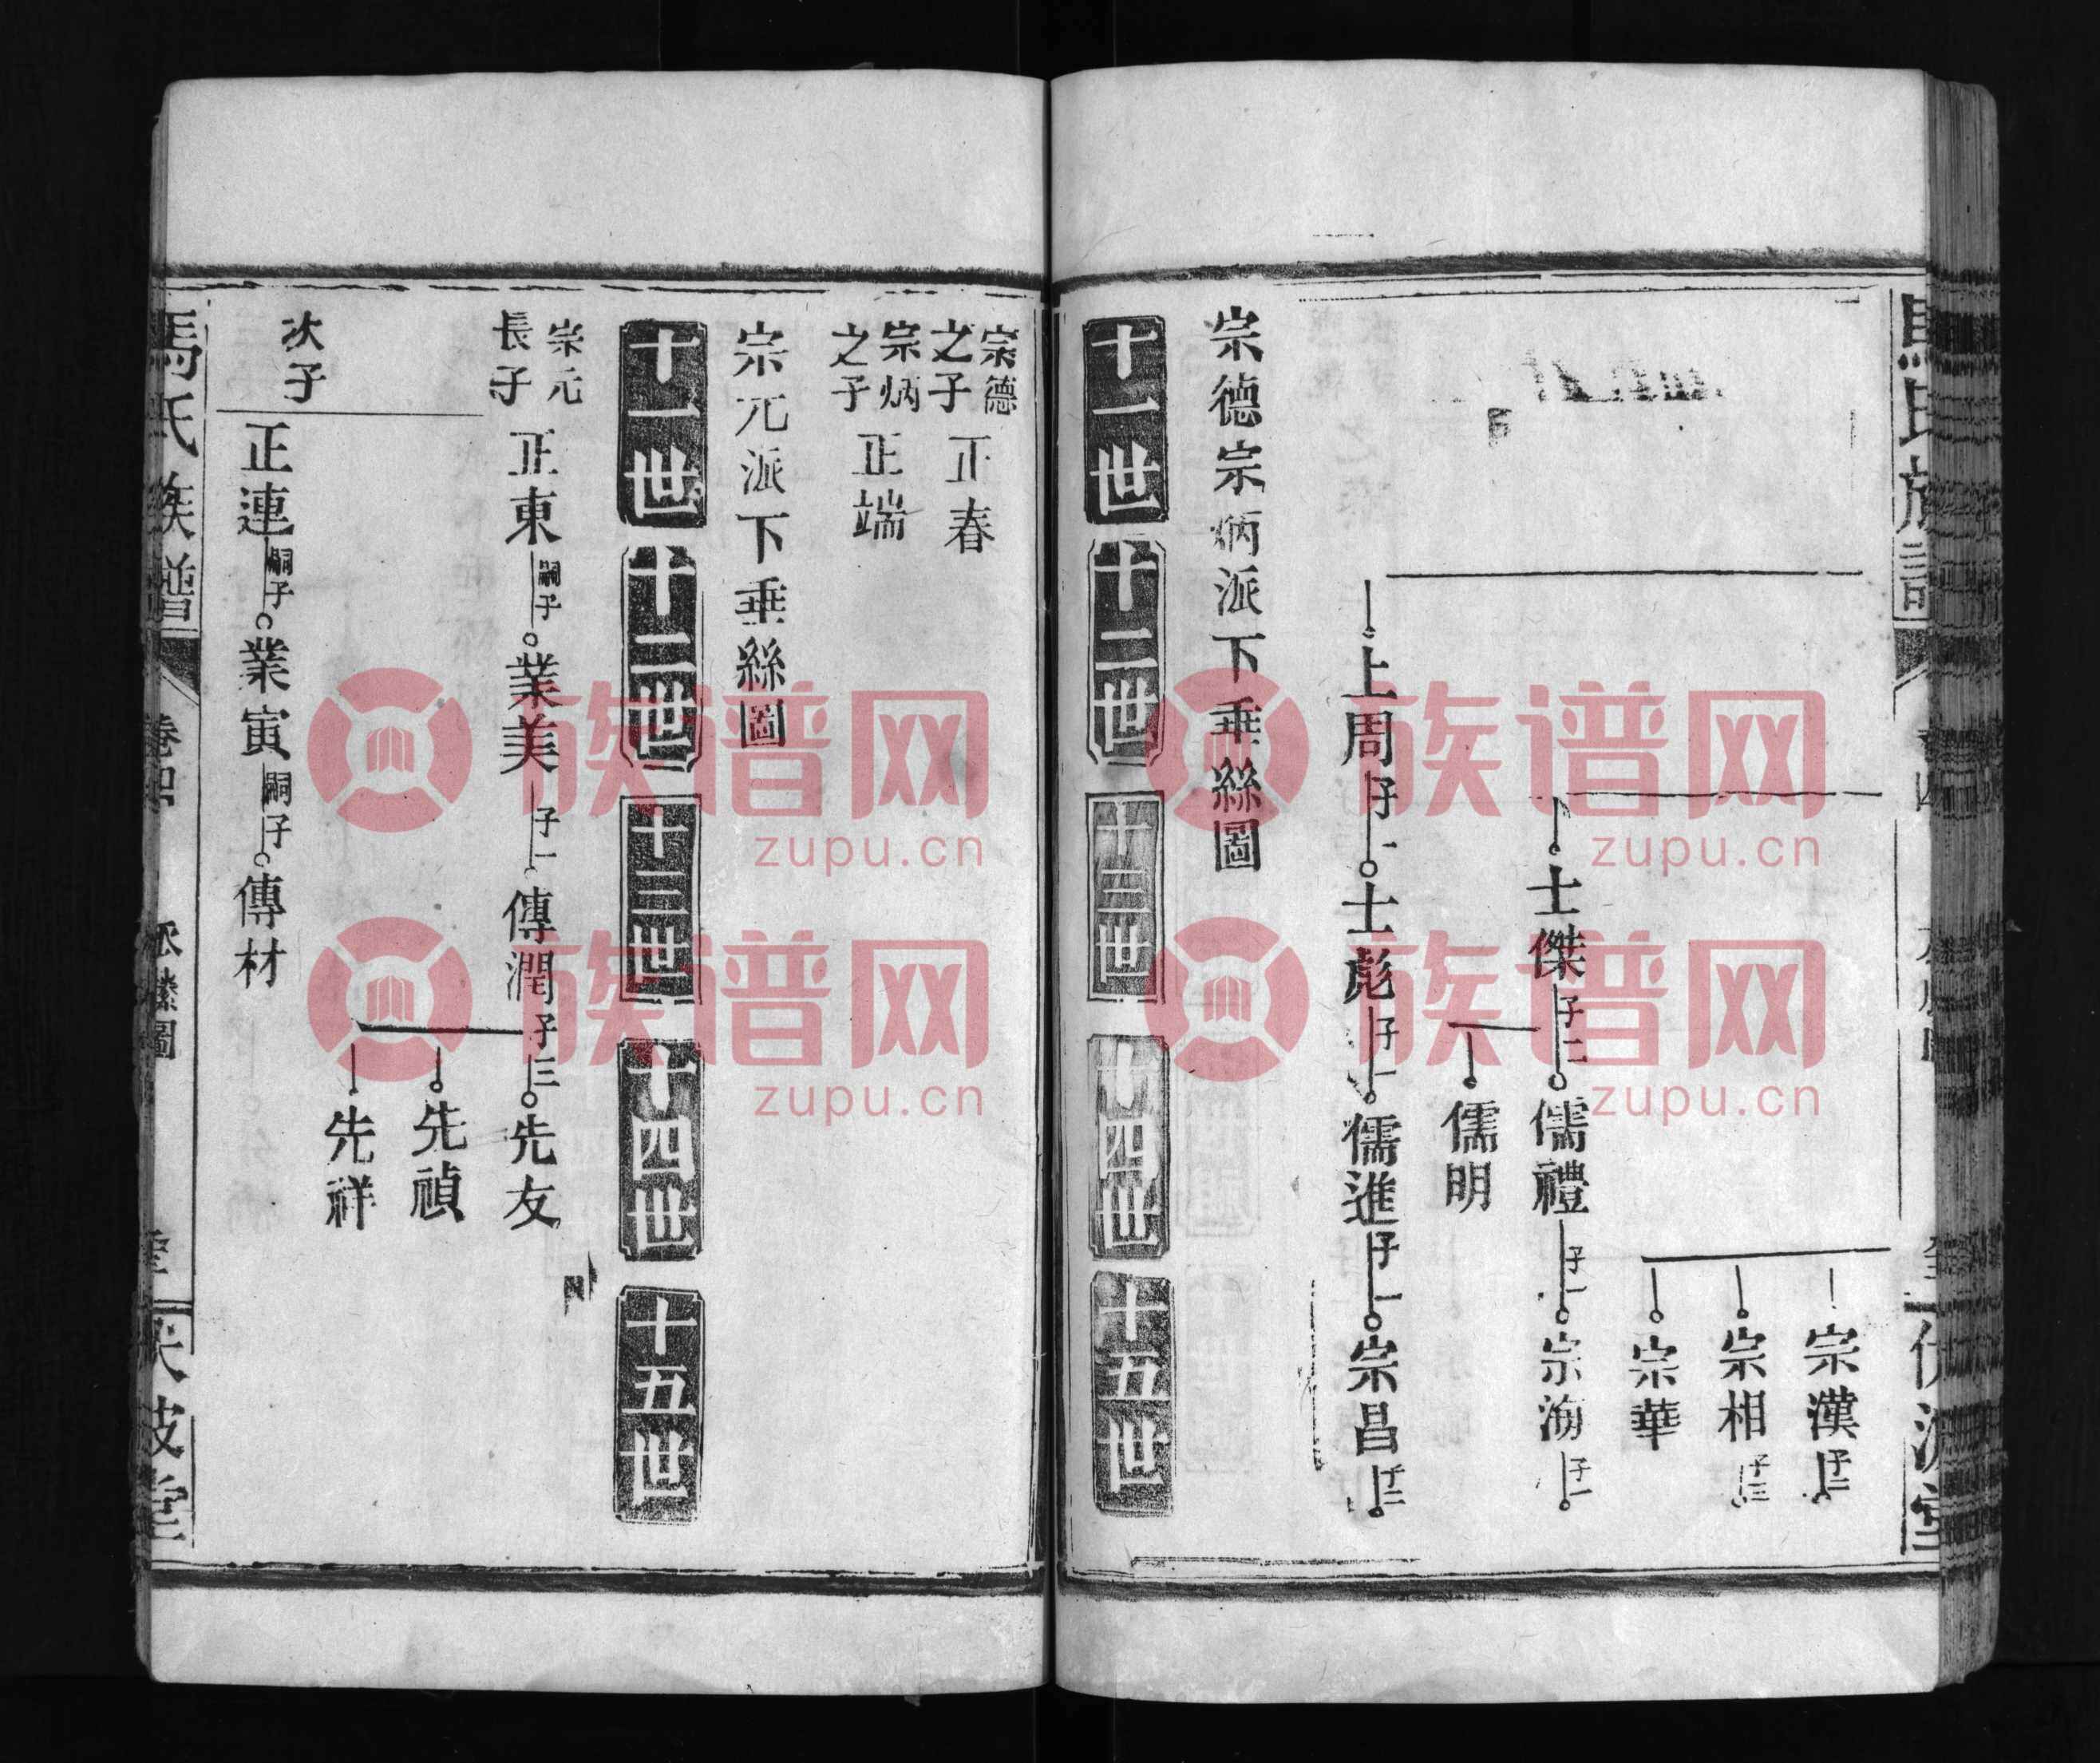 宗漢子二
宗相子三
宗華
士傑子二儒禮子一宗海子一
儒明
上周子一士彪子一儒進子一宗昌子二
宗德宗炳派下垂絲圖
十一世
十二世
十三世
十四世
十五世
宗德之子正春
宗炳之子正端
宗元派下垂絲圖
十一世
十二世
十三世
十四世
十五世
宗元長子正東嗣子業美子一傳潤子三先友
先禎
先祥
次子正連嗣子業寅嗣子傳材
馬氏族譜
族谱网
zupu.cn
族谱网
zupu.cn
族谱网
zupu.cn
族谱网
zupu.cn